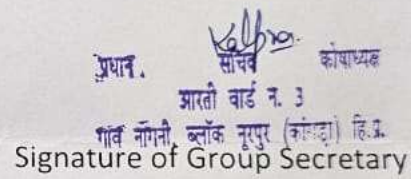 Kalpna.
प्रधान. सचिव कोषाध्यक्ष
आरती वार्ड न. 3
गांव नॉगनी, ब्लॉक नूरपुर (कांगड़ा) हि.प्र.
Signature of Group Secretary